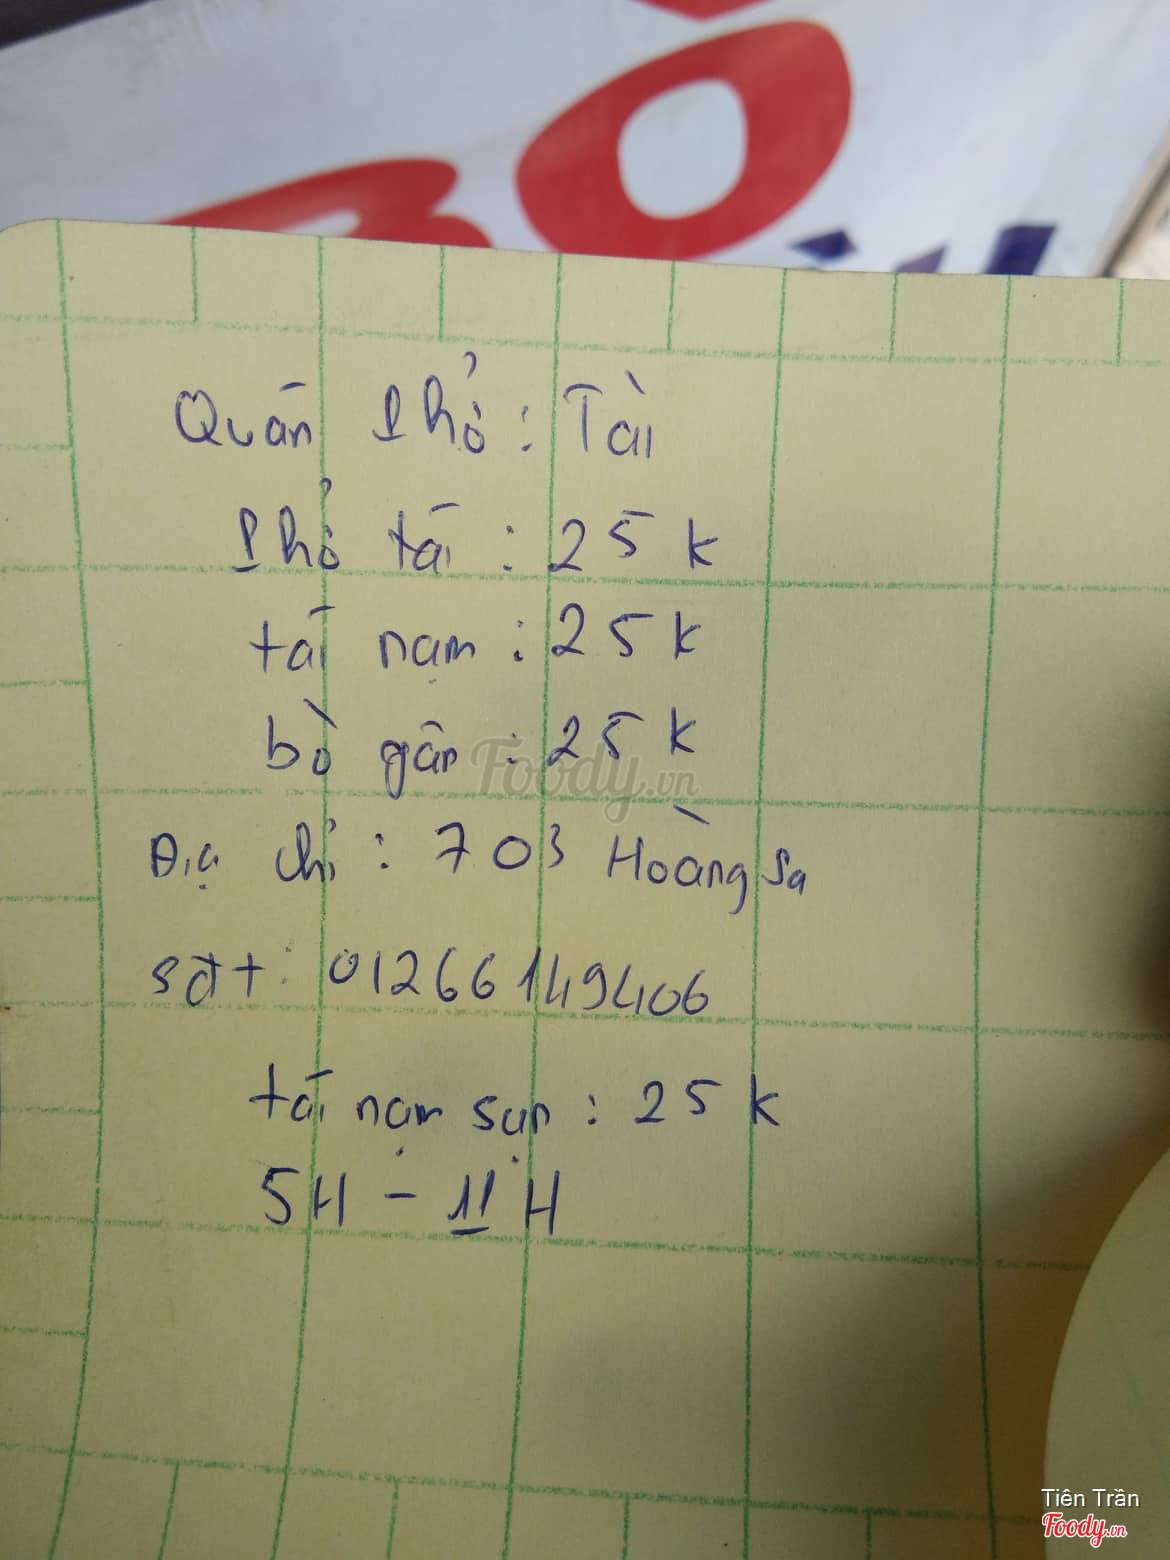 BÒ
Quán Phở: Tài
Phở tái: 25k
tái nạm: 25k
bò gân: 25k
Địa chỉ: 703 Hoàng Sa
sđt: 01266149406
tái nạm sụn: 25k
5H - 11H
Foody.vn
Tiên Trần
Foody.vn